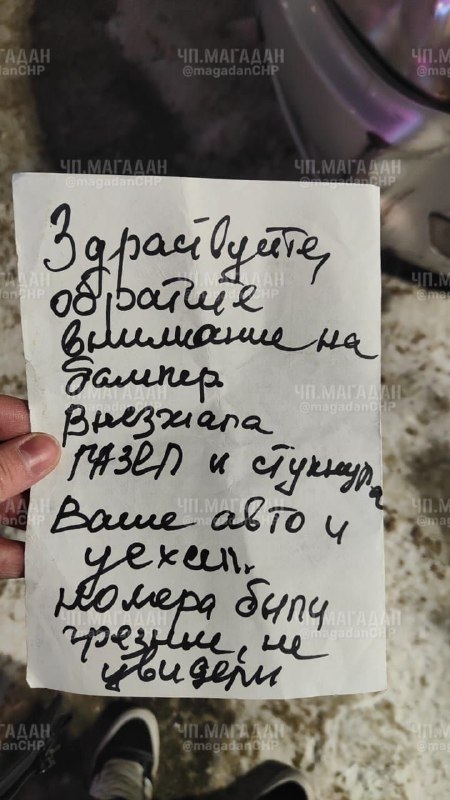 ЧП.МАГАДАН
@magadanCHP
Здраствуйте,
обратите
внимание на
бампер.
Внезжала
ГАЗЕЛ и стукнула
Ваше авто и
уехал.
Номера были
грезные, не
увидели